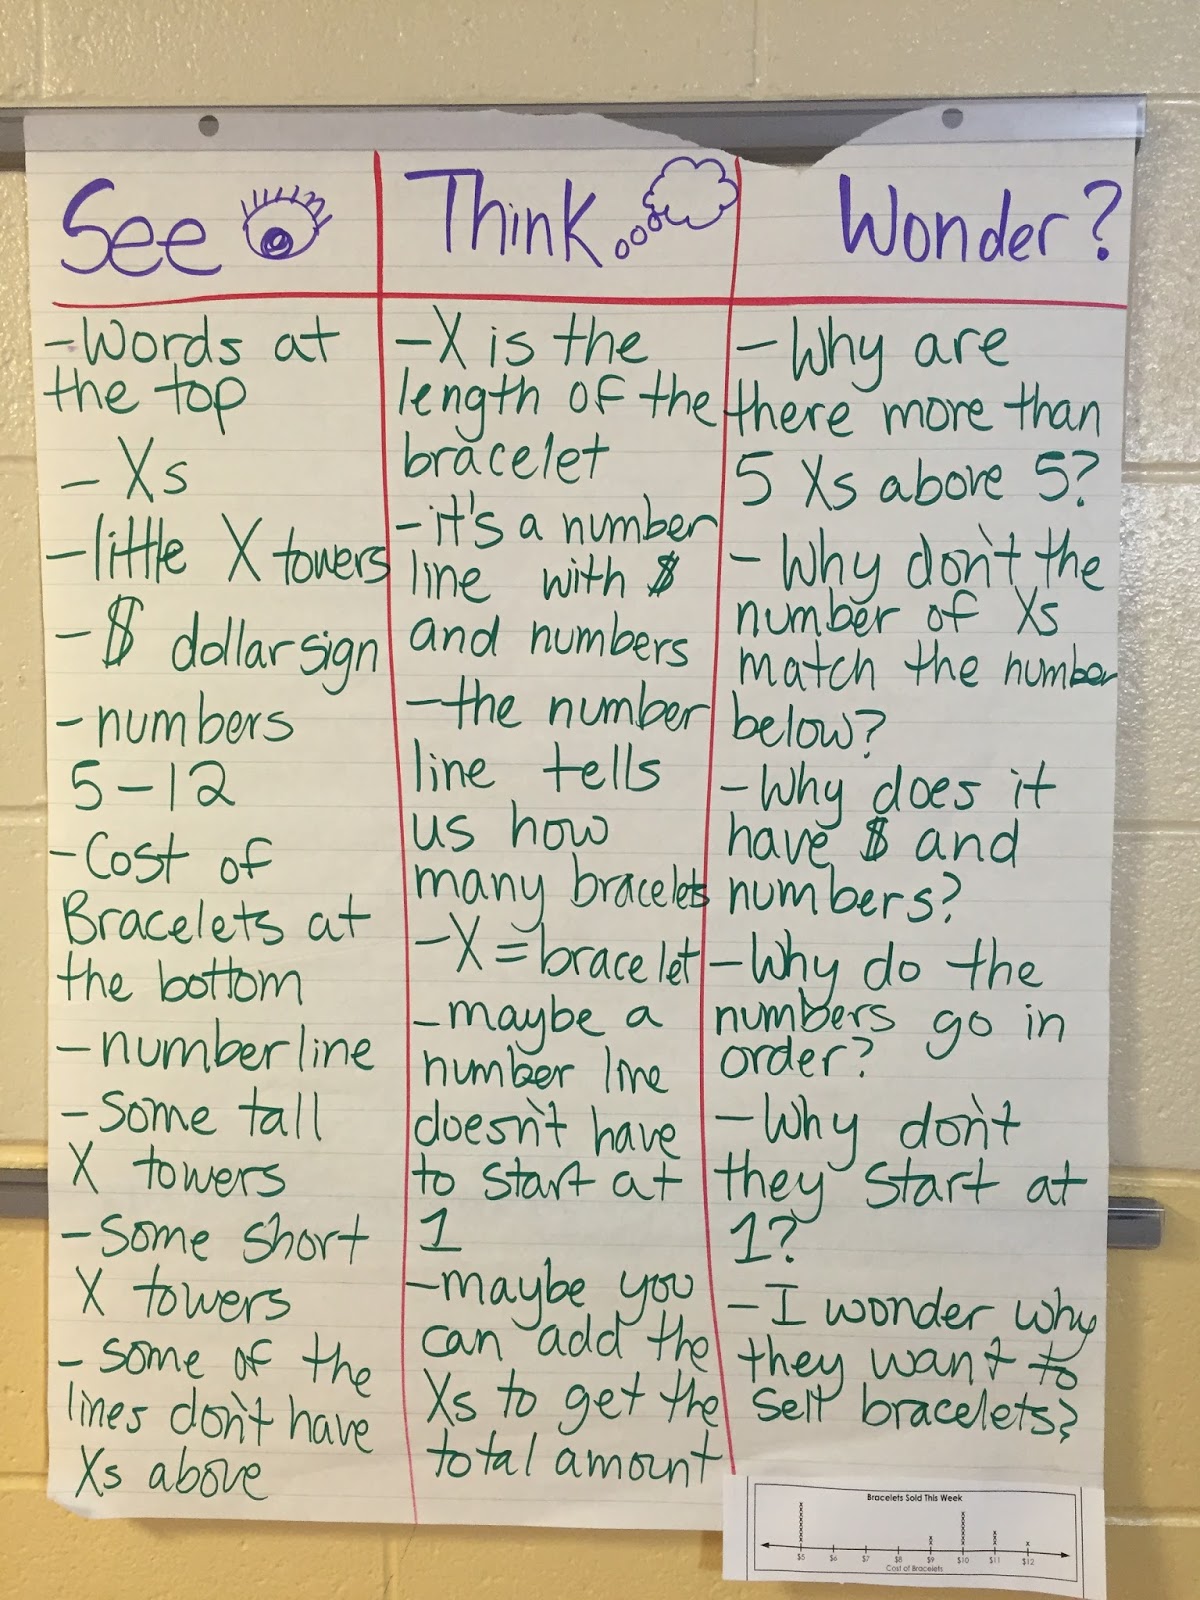 See
-Words at
the top
- Xs
-little X towers
-$ dollar sign
-numbers
5-12
-Cost of
Bracelets at
the bottom
-number line
-Some tall
X towers
-Some short
X towers
- some of the
lines don't have
Xs above
Think
-X is the
length of the
bracelet
-it's a number
line with $
and numbers
-the number
line tells
us how
many bracelets
-X=bracelet
-maybe a
number line
doesn't have
to start at
1
-maybe you
can add the
Xs to get the
total amount
Wonder?
-Why are
there more than
5 Xs above 5?
- Why don't the
number of Xs
match the number
below?
-Why does it
have $ and
numbers?
-Why do the
numbers go in
order?
-Why don't
they start at
1?
-I wonder why
they want to
sell bracelets?
Bracelets Sold This Week
$5 $6 $7 $8 $9 $10 $11 $12
Cost of Bracelets